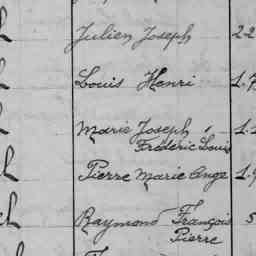 Julien Joseph 22
Louis Henri 1.
Marie Joseph, 1.
Frédéric Louis
Pierre Marie Ange 1.9
Raymond François 5
Pierre